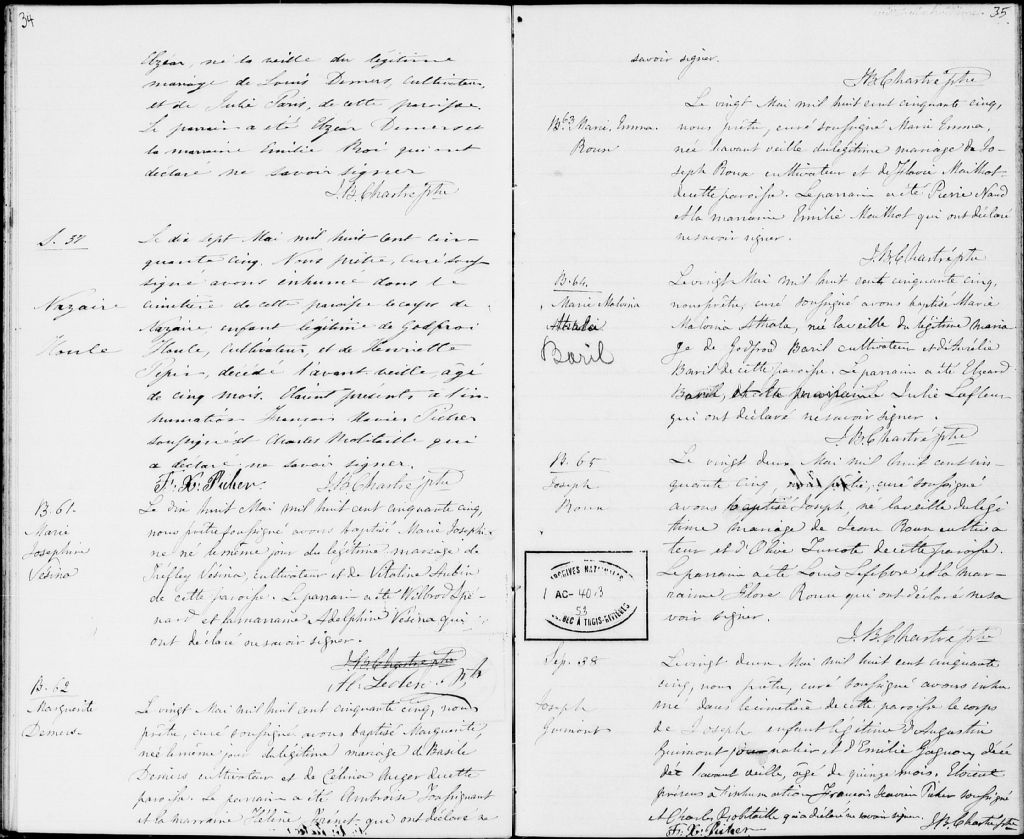 34
Elzéar, né la veille du légitime
mariage de Louis Demers, cultivateur,
et de Julie Paris, de cette paroisse.
Le parrain a été Elzéar Demers et
la marraine Emilie Roi qui ont
déclaré ne savoir signer
J.B. Chartré ptre
S. 37
Nazaire
Houle
Le dix sept Mai mil huit cent cin-
quante cinq. Nous prêtre, curé sous-
signé avons inhumé dans le
cimitière de cette paroisse le corps de
Nazaire, enfant légitime de Godfroi
Houle, cultivateur, et de Henriette
Pepin, décédé l'avant-veille, agé
de cinq mois. Etaient présents à l'in-
humation François Xavier Picher
soussigné et Charles Robitaille qui
a déclaré ne savoir signer.
F. X. Picher. J.B. Chartré ptre
B. 61.
Marie
Josephine
Vésina
Le dix huit Mai mil huit cent cinquante cinq,
nous prêtre soussigné avons baptisé Marie Josephi-
ne né le même jour du légitime mariage de
Trefley Vésina, cultivateur et de Vitaline Aubin
de cette paroisse. Le parrain a été Wilbrod Spé-
nard et la marraine Adelphine Vésina qui
ont déclaré ne savoir signer.
J.B. Chartré ptre
B. 62
Marguerite
Demers
Le vingt Mai mil huit cent cinquante cinq, nous
prêtre, curé soussigné avons baptisé Marguerite,
née le même jour du légitime mariage de Basile
Demers cultivateur et de Célina Auger de cette
paroisse. Le parrain a été Ambroise Toussignant
et la marraine Hélène qui ont déclaré ne
35
savoir signer.
J.B. Chartré ptre
B. 63 Marie, Emma.
Roux
Le vingt Mai mil huit cent cinquante cinq,
nous prêtre, curé soussigné Marie Emma,
née l'avant veille du légitime mariage de Jo-
seph Roux cultivateur et de Flavie Mailhot
de cette paroisse. Le parrain a été Pierre Naud
et la marraine Emilie Mailhot qui ont déclaré
ne savoir signer.
J.B. Chartré ptre
B. 64.
Marie Malvina
Athala
Baril
Le vingt Mai mil huit cents cinquante cinq,
nous prêtre, curé soussigné avons baptisé Marie
Malvina Athala, né la veille du légitime maria
ge de Godfroid Baril cultivateur et d'Aurélie
Baril de cette paroisse. Le parrain a été Elzeard
Baril, et la Julie Lafleur
qui ont déclaré ne savoir signer.
J.B. Chartré ptre
B. 65
Joseph
Roux
Le vingt deux Mai mil huit cent cin-
quante cinq, curé soussigné
avons baptisé Joseph, né la veille du légi
time mariage de Léon Roux cultiva
teur et d'Olive Turcote de cette paroisse.
Le parrain a été Louis Lefebvre et la mar-
raine Flore Roux qui ont déclaré ne sa
voir signer.
J.B. Chartré ptre
ARCHIVES NATIONALES
AC-40 B
53
QUEBEC A TROIS-RIVIÈRES
Sep. 38
Joseph
Guimont
Le vingt deux Mai mil huit cent cinquante
cinq, nous prêtre, curé soussigné avons inhu
mé dans le cimetière de cette paroisse le corps
de Joseph enfant légitime d'Augustin
Guimont journalier et d'Emilie Gagnon, décé
dée l'avant veille, âgé de quinze mois. Etoient
présens à l'inhumation François Xavier Picher soussigné
et Charles Robitaille qui a déclaré ne savoir signer. J.B. Chartré ptre
F. X. Picher